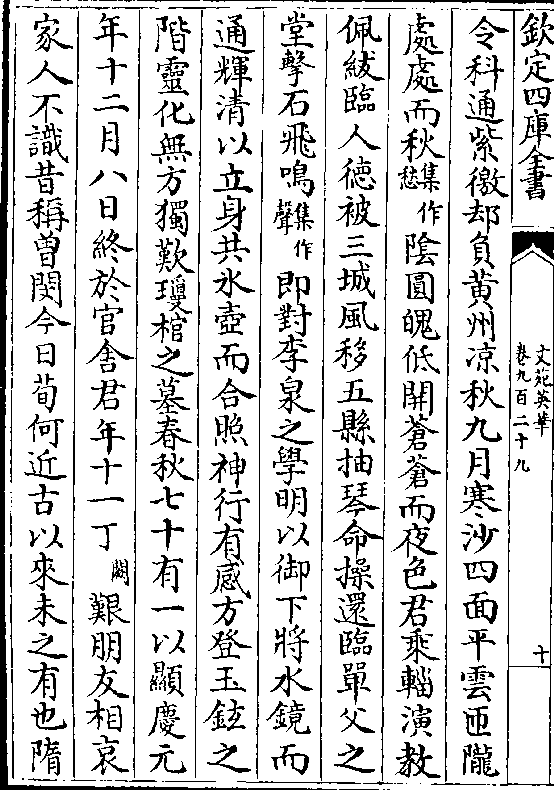 欽定四庫全書
文苑英華
卷九百二十九
十
令科通紫徼却負黄州凉秋九月寒沙四面平雲匝隴
處處而秋集作愁陰圓魄低開蒼蒼而夜色君乘軺演教
佩紱臨人徳被三城風移五縣抽琴命操還臨單父之
堂擊石飛鳴集作聲即對李泉之學明以御下將水鏡而
通輝清以立身共氷壺而合照神行有感方登玉鉉之
階靈化無方獨歎瓊棺之墓春秋七十有一以顯慶元
年十二月八日終於官舍君年十一丁闕艱朋友相哀
家人不識昔稱曽閔今日荀何近古以來未之有也隋